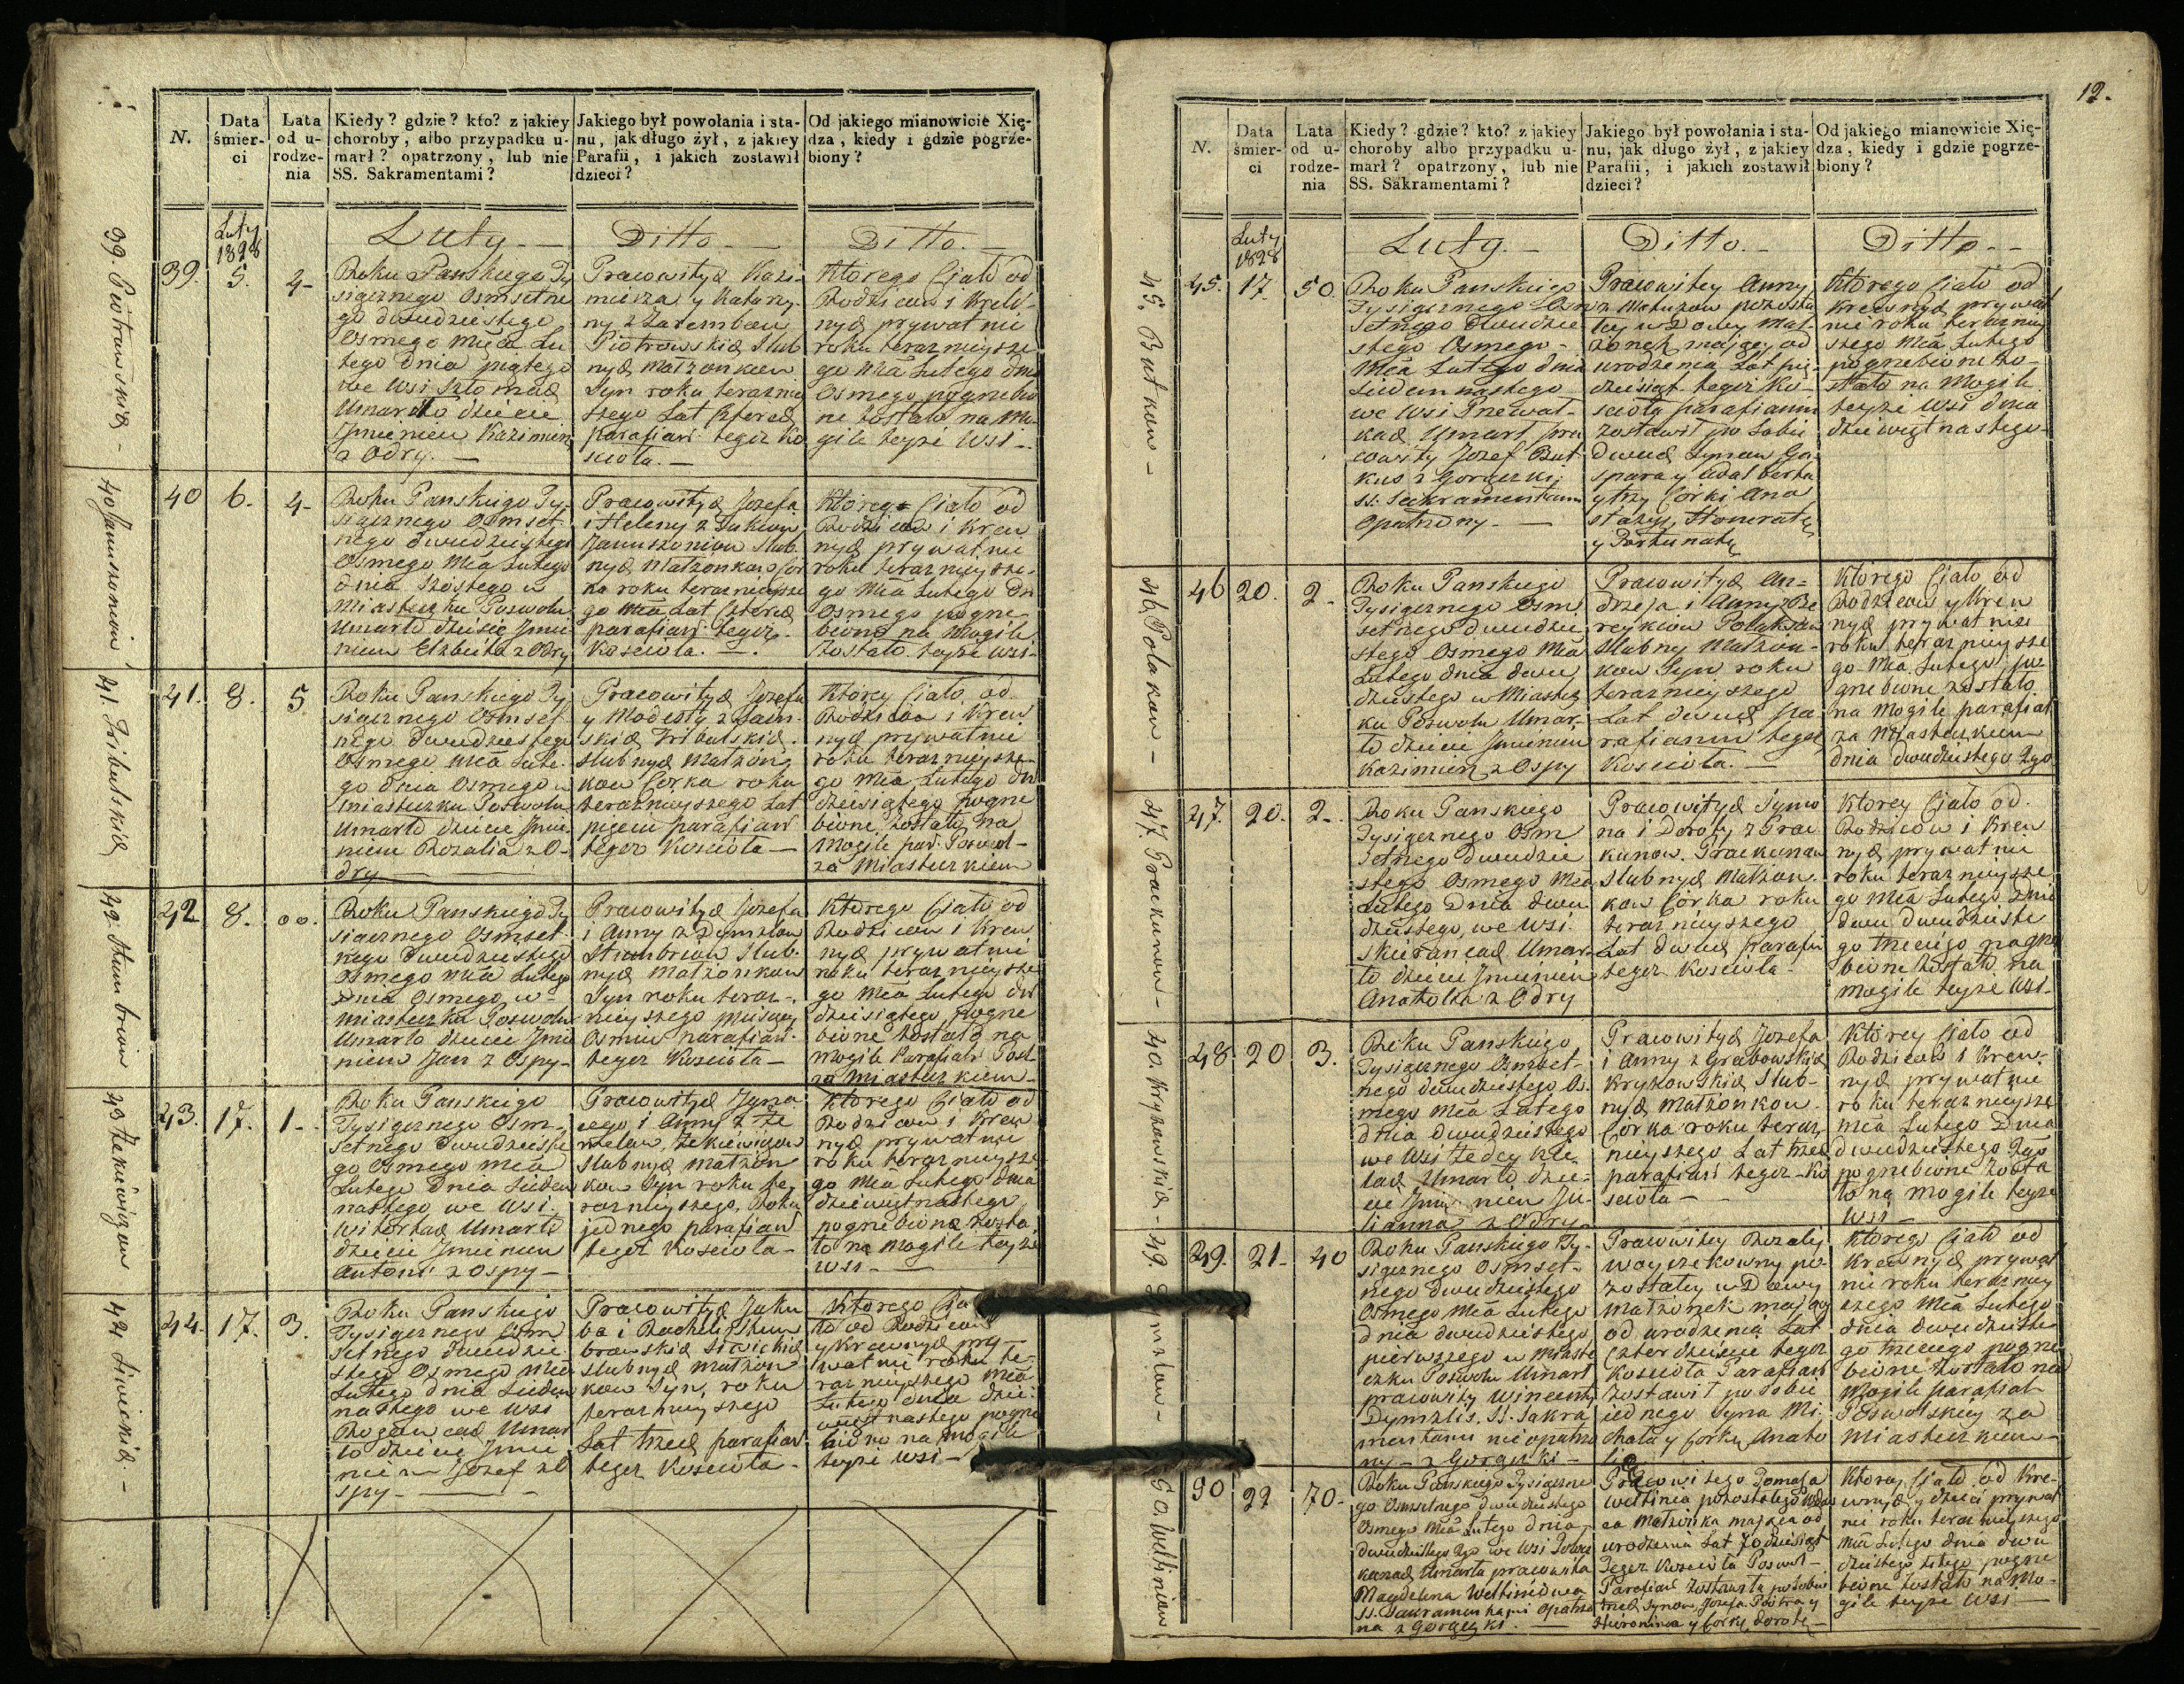 N.
Data
śmier-
ci
Lata
od u-
rodze-
nia
Kiedy? gdzie? kto? z jakiey
choroby, albo przypadku u-
marł? opatrzony, lub nie
SS. Sakramentami?
Jakiego był powołania i sta-
nu, jak długo żył, z jakiey
Parafii, i jakich zostawił
dzieci?
Od jakiego mianowicie Xię-
dza, kiedy i gdzie pogrze-
biony?
Luty
1828
Luty
Ditto
Ditto.
39.
5.
4-
Roku Panskiego Ty
siącznego Osmsetne
go dwudziestego
Osmego Mca Lu
tego dnia piątego
we Wsi
Umarło dziecie
Imieniem Kazimierz
z Odry.
Pracowitych Kazi-
mierza y Katarzy-
ny z Zarembow
Piotrowskich Slub
nych Małżonkow
Syn roku teraznie
szego Lat Czterech
parafian tegoż Ko
scioła.
Ktorego Ciało od
Rodzicow i Krew
nych prywatnie
roku teraznieysze
go Mca Lutego dnia
Osmego pogrzebio
ne zostało na Mo-
gile teyże Wsi
40
6.
4-
Roku Panskiego Ty-
siącznego Osmset-
nego dwudziestego
Osmego Mca Lutego
dnia szostego w
Miasteczku Poswolu
Umarło dziecie Imie
niem Elzbieta z Odry
Pracowitych Jozefa
i Heleny z
Januszoniow Slub.
nych Małżonkow Cor
ka roku teraznieysze
go Mca Lat Czterech
parafian tegoż
Koscioła.
Ktorego Ciało od
Rodzicow i Krew
nych prywatnie
roku teraznieysze-
go Mca Lutego dn
Osmego pogrze-
bione na Mogile
zostało teyże Wsi-
41.
8.
5
Roku Panskiego Ty
siącznego Osmset
nego dwudziestego
Osmego Mca Lute-
go dnia Osmego w
miasteczku Poswolu
Umarło dziecie Imie
niem Rozalia z O-
dry
Pracowitych Jozefa
y Modesty z
skich Tribulskich.
slubnych Małżon
kow Corka roku
teraznieyszego Lat
pięciu parafian
tegoż Koscioła
Ktorey Ciało od
Rodzicow i Krew
nych prywatnie
roku teraznieysze-
go Mca Lutego dn
dziesiątego pogrze
bione zostało na
Mogile par: Poswol-
za Miasteczkiem
42
8.
00.
Roku Panskiego Ty
siącznego Osmset-
nego dwudziestego
Osmego Mca Lutego
dnia Osmego w-
miasteczku Poswolu
Umarło dziecie Imie
niem Jan z Ospy-
Pracowitych Jozefa
i Anny z Dymszow
Stumbriow Slub-
nych Małżonkow
Syn roku teraz-
nieyszego miesięcy
Osmiu parafian
tegoż Koscioła-
Ktorego Ciało od
Rodzicow i Krew
nych prywatnie
roku teraznieysze
go Mca Lutego dn
dziesiątego pogrze
bione zostało na
mogile Parafial: Posw-
za Miasteczkiem-
43.
17.
1-
Roku Panskiego
Tysiącznego Osm-
setnego dwudzieste
go Osmego Mca
Lutego dnia Siedem
nastego we Wsi
Umarło
dziecie Imieniem
Antoni z Ospy-
Pracowitych Igna
cego i Anny z
Żekiewiczow
Slubnych Małżon
kow Syn roku te
raznieyszego, Roku
jednego parafian
tegoż Koscioła-
Ktorego Ciało od
Rodzicow i Krew
nych prywatnie
roku teraznieysze
go Mca Lutego dnia
dziewiętnastego
pogrzebione zosta
ło na Mogile teyże
Wsi-
44.
17.
3.
Roku Panskiego
Tysiącznego Osm
setnego dwudzie
stego Osmego Mca
Lutego dnia Siedem
nastego we Wsi
Umar
ło dziecie Imie
niem Jozef z O
spy-
Pracowitych Jaku
ba i Racheli
Slubnych Małżon
kow Syn, roku
teraznieyszego
Lat trzech parafian
tegoż Koscioła-
Ktorego Cia
ło od Rodzicow
y Krewnych pry-
watnie roku te-
raznieyszego Mca
Lutego dnia dzie-
więtnastego pogrze
biono na Mogile
teyże Wsi-
39. Piotrowskich-
40 Januszoniow
41. Tribulskich
42. Stumbriow
43 Żekiewiczow
44
12.
N.
Data
śmier-
ci
Lata
od u-
rodze-
nia
Kiedy? gdzie? kto? z jakiey
choroby albo przypadku u-
marł? opatrzony, lub nie
SS. Sakramentami?
Jakiego był powołania i sta-
nu, jak długo żył, z jakiey
Parafii, i jakich zostawił
dzieci?
Od jakiego mianowicie Xię-
dza, kiedy i gdzie pogrze-
biony?
Luty
1828
Luty.
Ditto.
Ditto.
45.
17.
50.
Roku Panskiego
Tysiącznego Osm
setnego dwudzie
stego Osmego
Mca Lutego dnia
Siedemnastego
we Wsi
Umarł pra
cowity Jozef But
kus z Gorączki
SS. Sakramentami
Opatrzony-
Pracowitey Anny
z pozosta
łey wdowy Mał-
żonek maiący od
urodzenia Lat pię
dziesiąt tegoż Ko-
scioła parafianin
zostawił po Sobie
dwuch Synow Ga-
spara y Adalberta
y trzy Corki Ana
stazyę, Honoratę
y Fortunatę
Ktorego Ciało od
Krewnych prywat
nie roku teraznie
szego Mca Lutego
pogrzebione zo-
stało na Mogile
teyże Wsi dnia
dziewiętnastego-
46
20.
2-
Roku Panskiego
Tysiącznego Osm
setnego dwudzie
stego Osmego Mca
Lutego dnia dwu
dziestego w Miastecz
ku Poswolu Umar-
ło dziecie Imieniem
Kazimierz z Ospy
Pracowitych An-
drzeja i Anny
Polakow
Slubnych Małżon-
kow Syn roku
teraznieyszego
Lat dwuch pa-
rafianin tegoż
Koscioła.
Ktorego Ciało od
Rodzicow y Krew
nych prywatnie
roku teraznieysze
go Mca Lutego po-
grzebione zostało
na Mogile parafial
za Miasteczkiem
dnia dwudziestego 2go
47.
20.
2-
Roku Panskiego
Tysiącznego Osm
setnego dwudzie
stego Osmego Mca
Lutego dnia dwu
dziestego, we Wsi
Umar-
ło dziecie Imieniem
Anatolia z Odry
Pracowitych Symo
na i Doroty z

Slubnych Małżon-
kow Corka roku
teraznieyszego
Lat dwuch Parafii
tegoż Koscioła-
Ktorey Ciało od
Rodzicow i Krew
nych prywatnie
roku teraznieysze
go Mca Lutego dnia
dwu dwudzieste
go trzeciego pogrze
bione zostało na
Mogile teyże Wsi-
48
20
3.
Roku Panskiego
Tysiącznego Osmset-
nego dwudziestego Os-
mego Mca Lutego
dnia dwudziestego
we Wsi
Umarło dzie-
cie Imieniem Ju-
lianna z Odry
Pracowitych Jozefa
i Anny z Grabowskich
Kryzowskich Slub-
nych Małżonkow
Corka roku teraz-
nieyszego Lat trzech
parafian tegoż Ko
scioła-
Ktorey Ciało od
Rodzicow i Krew-
nych prywatnie
roku teraznieysze
Mca Lutego Dnia
dwudziestego 2go
pogrzebione zosta
ło na Mogile teyże
Wsi-
49.
21-
40
Roku Panskiego Ty-
siącznego Osmset-
nego dwudziestego
Osmego Mca Lutego
dnia dwudziestego
pierwszego w Miaste
czku Poswolu Umarł
pracowity Wincenty
Dymszlis. SS. Sakra
mentami nieopatrzo
ny- z Gorączki-
Pracowitey Rozalij
po-
zostałey wdowy
Małżonek maiący
od urodzenia Lat
Czterdziescie tegoż
Koscioła Parafian
Zostawił po Sobie
iednego Syna Mi-
chała y Corkę Anato
lią
Ktorego Ciało od
Krewnych prywat
nie roku teraznie
szego Mca Lutego
dnia dwudzieste-
go trzeciego pogrze
bione zostało na
Mogile parafial
Poswolskiey za
Miasteczkiem-
50
22
70-
Roku Panskiego Tysiączne
go Osmsetnego dwudziestego
Osmego Mca Lutego dnia
dwudziestego 2go we Wsi
Umarła pracowita
Magdalena Weltiniowa
SS. Sakramentami Opatrzo
na z Gorączki.
Pracowitego Tomasza
Weltinia pozostałego wdow
ca Małżonka maiąca od
urodzenia Lat 70dziesiąt
Tegoż Koscioła Poswol-
Parafian zostawiła po Sobie
trzech Synow, Jozefa Piotra y
Hieronima y Corkę Dorotę-
Ktorey Ciało od Kre-
wnych y dzieci prywat
nie roku teraznieyszego
Mca Lutego dnia dwu
dziestego 4tego pogrze
bione zostało na Mo-
gile teyże Wsi-
45. Butkow-
46 Polakow-
47.
48. Kryzowskich-
49. Dymszlow-
50. Weltiniow